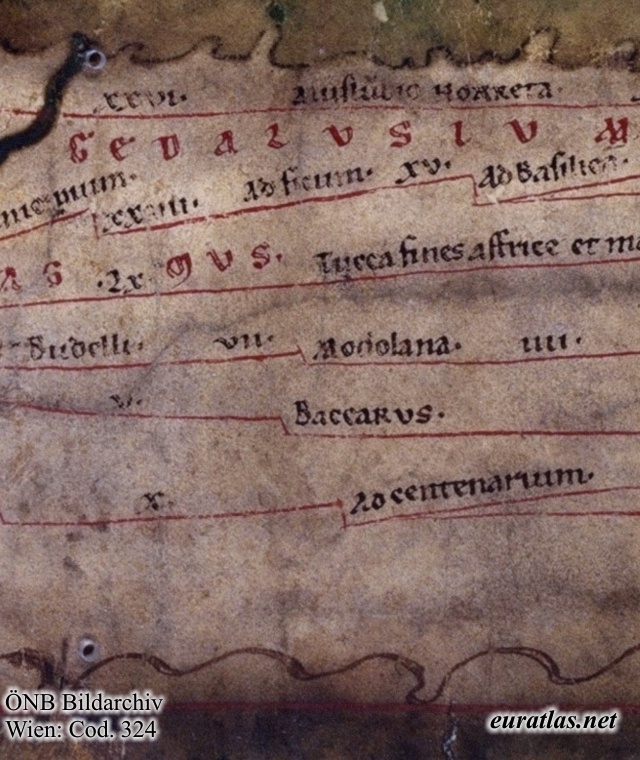 xxvi. horrea.
GEDALVSIVM
Ad ficum. xv. Ad Basilica.
AS . Lx GVS. Tucca fines affrice et ma
Budelli. vii. Modolana. iiii.
v. Baccarvs.
x. Ad centenarium.
ÖNB Bildarchiv
Wien: Cod. 324
euratlas.net